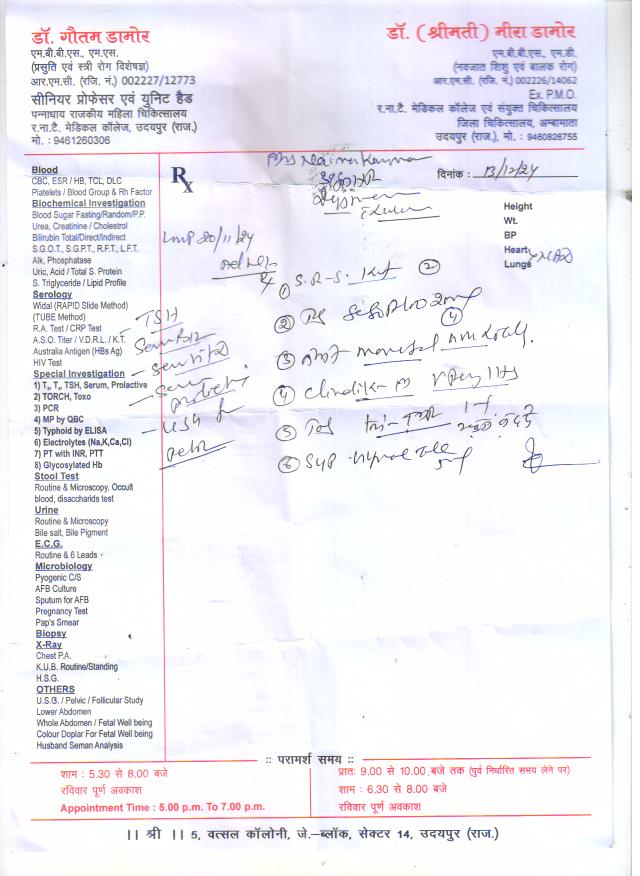 डॉ. गौतम डामोर
एम.बी.बी.एस., एम.एस.
(प्रसुति एवं स्त्री रोग विशेषज्ञ)
आर.एम.सी. (रजि. नं.) 002227/12773
सीनियर प्रोफेसर एवं युनिट हैड
पन्नाधाय राजकीय महिला चिकित्सालय
र.ना.टै. मेडिकल कॉलेज, उदयपुर (राज.)
मो. : 9461260306
डॉ. (श्रीमती) मीरा डामोर
एम.बी.बी.एस., एम.डी.
(नवजात शिशु एवं बालक रोग)
आर.एम.सी. (रजि. नं.) 002226/14062
Ex. P.M.O.
र.ना.टै. मेडिकल कॉलेज एवं संयुक्त चिकित्सालय
जिला चिकित्सालय, अम्बामाता
उदयपुर (राज.), मो. : 9460826755
Rx
दिनांक : 13/12/24
Height
Wt.
BP
Heart
Lungs
NAD
LMP 20/11/24
① S.R-S.
②
② 20mg
④
③
④
⑤ 1-1
⑥ Syp
TSH
Blood
CBC, ESR / HB, TCL, DLC
Platelets / Blood Group & Rh Factor
Biochemical Investigation
Blood Sugar Fasting/Random/P.P.
Urea, Creatinine / Cholestrol
Bilirubin Total/Direct/Indirect
S.G.O.T., S.G.P.T., R.F.T., L.F.T.
Alk, Phosphatase
Uric, Acid / Total S. Protein
S. Triglyceride / Lipid Profile
Serology
Widal (RAPID Slide Method)
(TUBE Method)
R.A. Test / CRP Test
A.S.O. Titer / V.D.R.L. / K.T.
Australia Antigen (HBs Ag)
HIV Test
Special Investigation
1) T₃, T₄, TSH, Serum, Prolactive
2) TORCH, Toxo
3) PCR
4) MP by QBC
5) Typhoid by ELISA
6) Electrolytes (Na,K,Ca,Cl)
7) PT with INR, PTT
8) Glycosylated Hb
Stool Test
Routine & Microscopy, Occult
blood, disaccharids test
Urine
Routine & Microscopy
Bile salt, Bile Pigment
E.C.G.
Routine & 6 Leads
Microbiology
Pyogenic C/S
AFB Culture
Sputum for AFB
Pregnancy Test
Pap's Smear
Biopsy
X-Ray
Chest P.A.
K.U.B. Routine/Standing
H.S.G.
OTHERS
U.S.G. / Pelvic / Follicular Study
Lower Abdomen
Whole Abdomen / Fetal Well being
Colour Doplar For Fetal Well being
Husband Seman Analysis
:: परामर्श समय ::
शाम : 5.30 से 8.00 बजे
रविवार पूर्ण अवकाश
Appointment Time : 5.00 p.m. To 7.00 p.m.
प्रातः 9.00 से 10.00 बजे तक (पुर्व निर्धारित समय लेने पर)
शाम : 6.30 से 8.00 बजे
रविवार पूर्ण अवकाश
।। श्री ।। 5, वत्सल कॉलोनी, जे.–ब्लॉक, सेक्टर 14, उदयपुर (राज.)